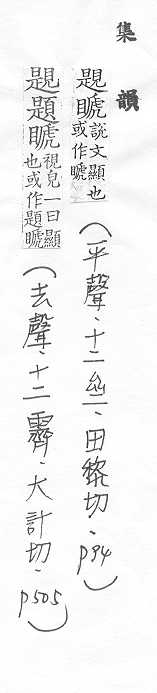 集韻
說文顯也
或作
(平聲、十二亝、田黎切、p94)
題
視皃一曰顯
也或作題
(去聲、十二霽、大計切、p505)